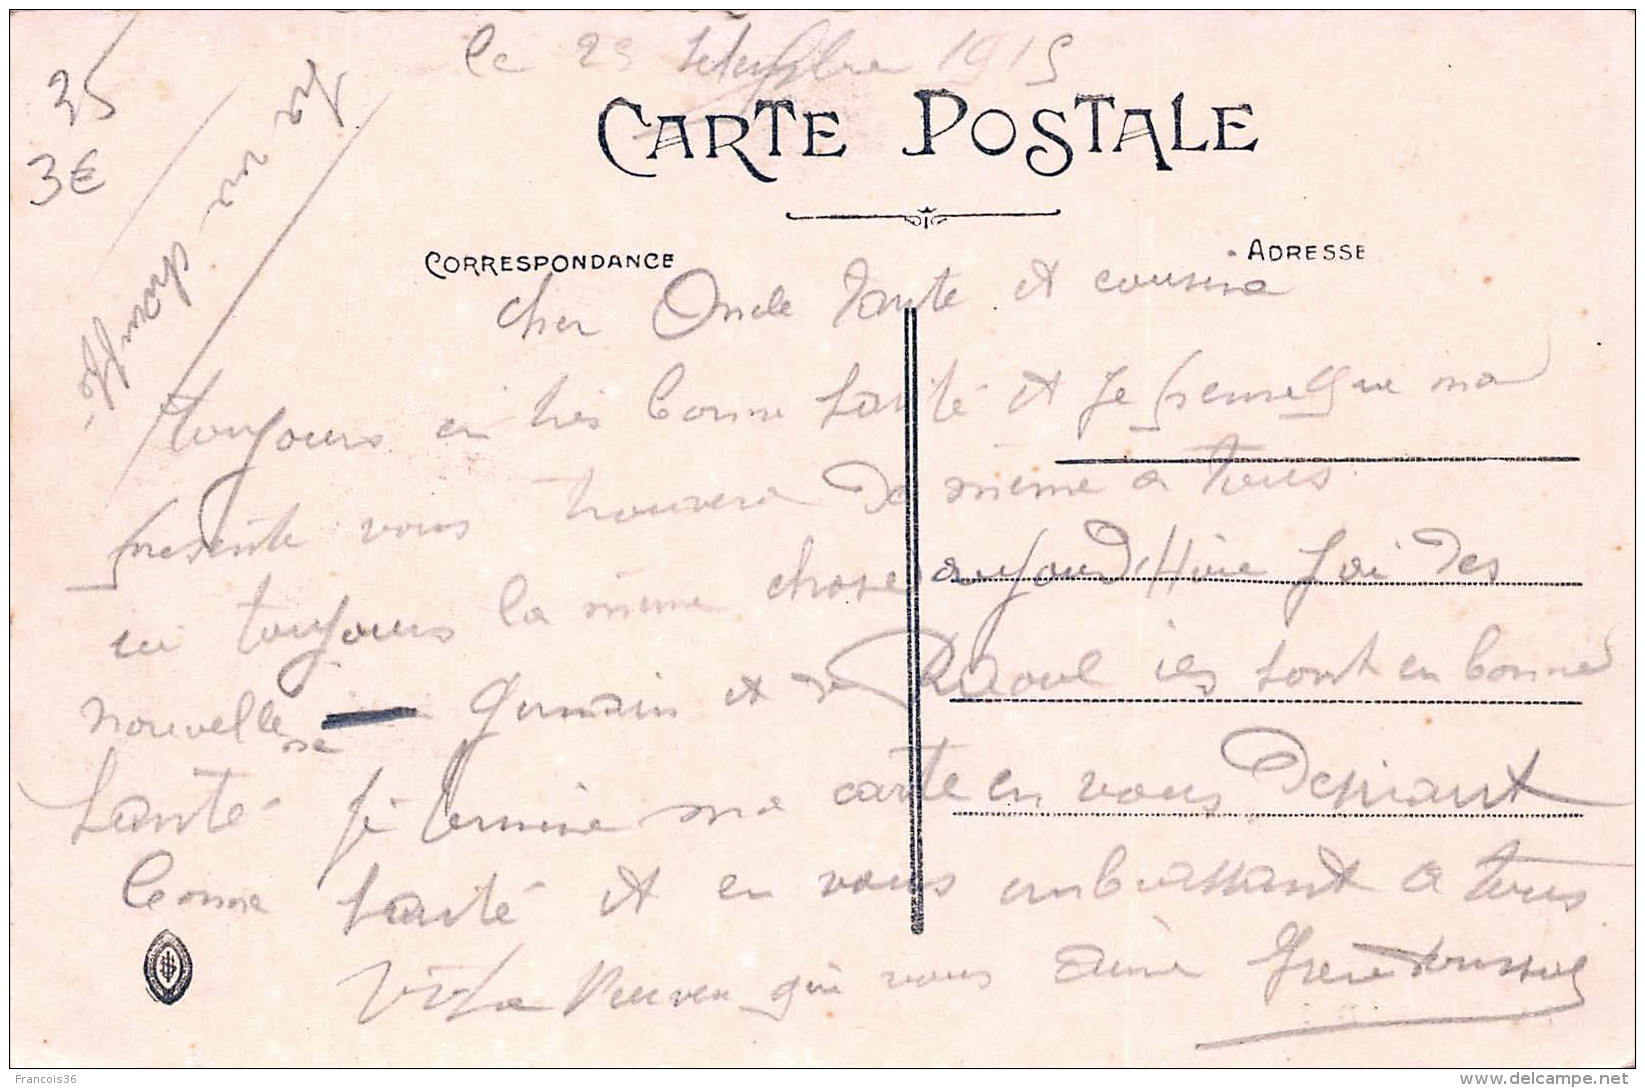 le 23 septembre 1915
35
3€
CARTE POSTALE
CORRESPONDANCE
ADRESSE
cher Oncle tante et cousine
toujours en très bonne santé et je pense que ma
presente vous trouvera de meme a tous
ici toujours la meme chose aujourd'Hui j'ai des
nouvelle de Germain et de Raoul ies sont en bonne
santé je termine ma carte en vous Desirant
bonne santé et en vous embrassant a tous
Votre neveu qui vous aime
Francois36
delcampe.net